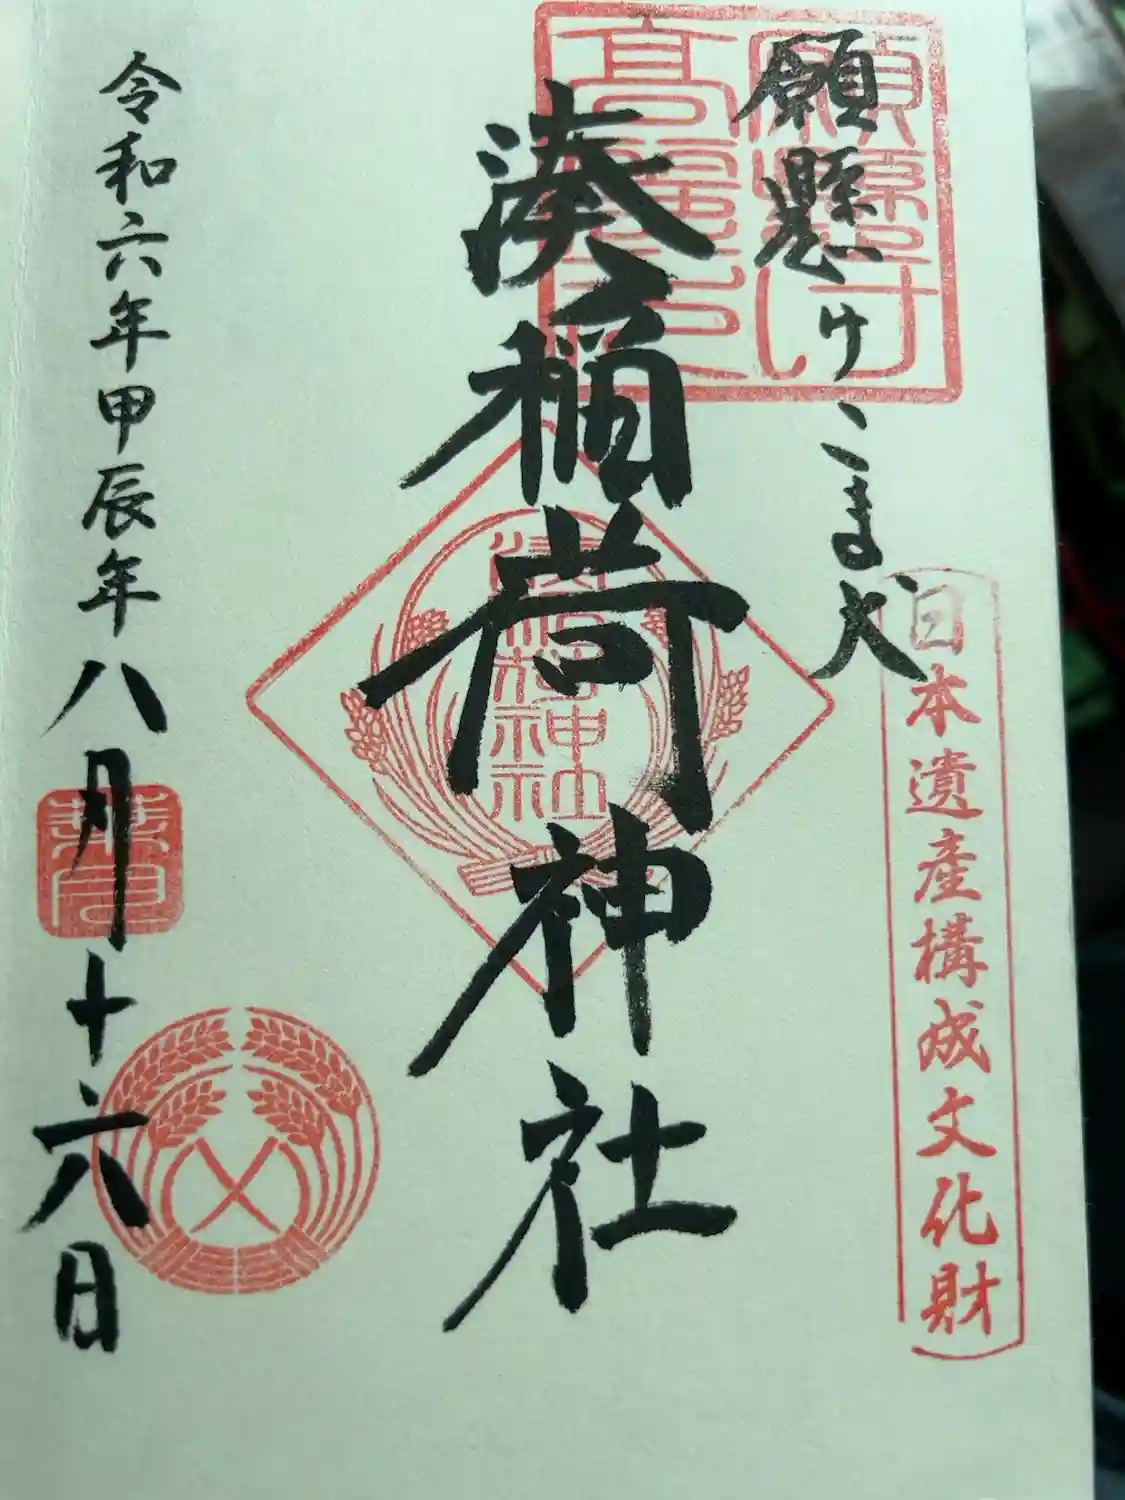 願懸けこま犬
日本遺産構成文化財
湊稲荷神社
湊稲荷神社
令和六年甲辰年八月十六日
葉月